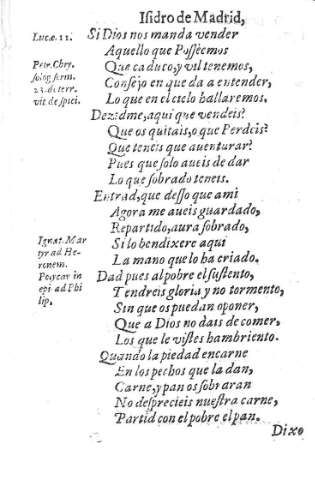 Isidro de Madrid,
Lucæ 11.
Si Dios nos manda vender
Aquello que Possèemos
Petr. Chry.
Que caduco, y vil tenemos
solog serm.
Consejo en que da a entender,
23. de terr.
vit de spici.
Lo que en el cielo hallaremos.
Dezidme, aqui que vendeis?
Que os quitais, o que Perdeis?
Que teneis que auenturar?
Pues que solo aueis de dar
Lo que sobrado teneis.
Entrad, que desso que ami
Agora me aueis guardado,
Repartido, aura sobrado,
Ignat. Mar
tyr ad He-
ronem.
Si lo bendixere aqui
La mano que lo ha criado.
Polycar in
epi ad Phi
lip.
Dad pues al pobre el sustento,
Tendreis gloria y no tormento,
Sin que os puedan oponer,
Que a Dios no dais de comer,
Los que le vistes hambriento.
Quando la piedad encarne
En los pechos que la dan,
Carne, y pan os sobraran
No desprecieis nuestra carne,
Partid con el pobre el pan.
Dixo